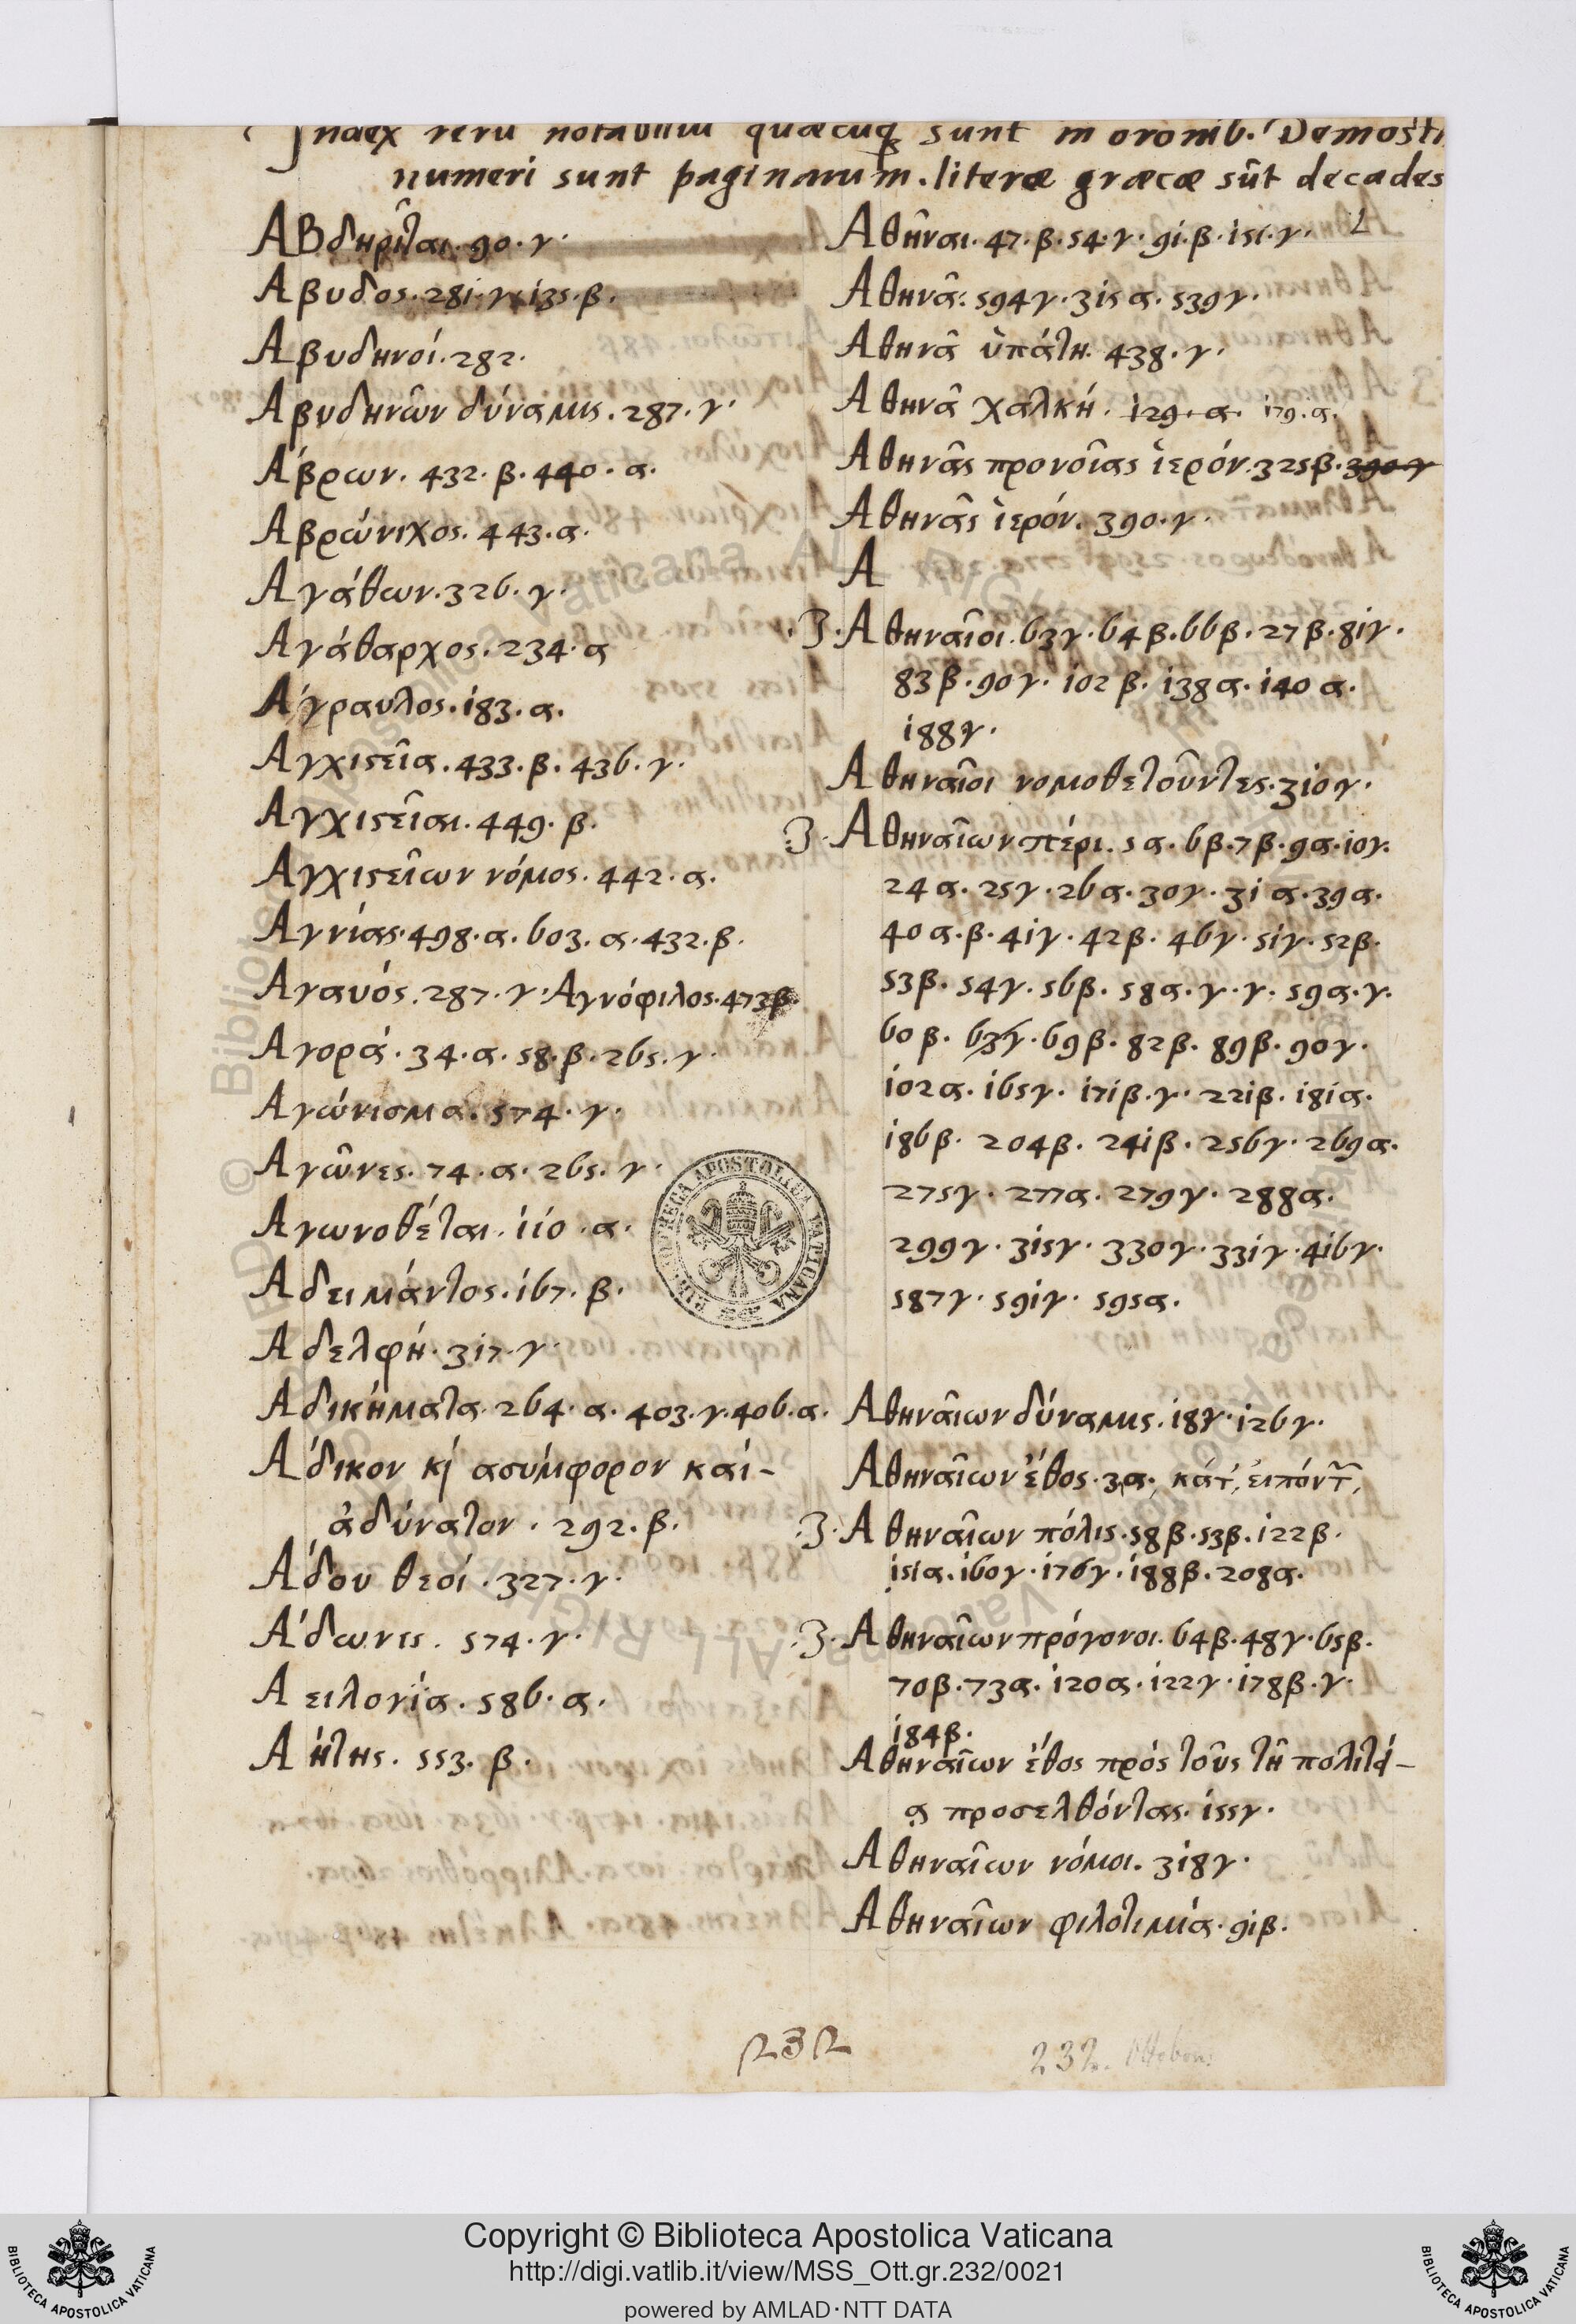 Index rerũ notabiliũ quæcuq sunt in oronib. Demosth
numeri sunt paginarum. literæ græcæ sũt decades
1
ΑΒδηρῖται. 90. γ.
Αβυδος. 281. γ. 135. β.
Αβυδηνοί. 282.
Αβυδηνῶν δύναμις. 287. γ.
Αβρων. 432. β. 440. α.
Αβρώνιχος. 443. α.
Αγάθων. 326. γ.
Αγάθαρχος. 234. α
Αγραυλος. 183. α.
Αγχιςεῖα. 433. β. 436. γ.
Αγχιςεῖαι. 449. β.
Αγχιςεῖων νόμος. 442. α.
Αγνίας. 498. α. 603. α. 432. β.
Αγαυός. 287. γ. Αγνόφιλος. 473β.
Αγορά. 34. α. 58. β. 265. γ.
Αγώνισμα. 574. γ.
Αγῶνες. 74. α. 265. γ.
Αγωνοθέται. 110. α.
Αδειμάντος. 167. β.
Αδελφή. 317. γ.
Αδικήματα. 264. α. 403. γ. 406. α.
Αδικον κὶ ασύμφορον καί-
ἀδύνατον. 292. β.
Αδου θεοί. 327. γ.
Αδωνις. 574. γ.
Αειλογία. 586. α.
Αήτης. 553. β.
Αθῆναι. 47. β. 54. γ. 91. β. 151. γ.
Αθηνᾶ. 594γ. 315 α. 539γ.
Αθηνᾶ ὑπάτη. 438. γ.
Αθηνᾶ χαλκή. 129. α. 179. α.
Αθηνᾶς προνοῖας ἱερόν. 325β. 390 γ
Αθηνᾶς ἱερόν. 390. γ.
Α
.3. Αθηναῖοι. 63γ. 64β. 66β. 27β. 81γ.
83β. 90γ. 102β. 138α. 140α.
188γ.
Αθηναῖοι νομοθετοῦντες. 310γ.
3. Αθηναῖων πέρι. 5α. 6β. 7β. 9α. 10γ.
24α. 25γ. 26α. 30γ. 31α. 39α.
40α. β. 41γ. 42β. 46γ. 51γ. 52β.
53β. 54γ. 56β. 58α. γ. γ. 59α. γ.
60β. 63γ. 69β. 82β. 89β. 90γ.
102α. 165γ. 171β. γ. 221β. 181α.
186β. 204β. 241β. 256γ. 269α.
275γ. 277α. 279γ. 288α.
299γ. 315γ. 330γ. 331γ. 416γ.
587γ. 591γ. 595α.
Αθηναῖων δύναμις. 18γ. 126γ.
Αθηναῖων ἔθος. 3α.
.3. Αθηναῖων πόλις. 58β. 53β. 122β.
151α. 160γ. 176γ. 188β. 208α.
.3. Αθηναῖων πρόγονοι. 64β. 48γ. 65β.
70β. 73α. 120α. 122γ. 178β. γ.
184β.
Αθηναῖων ἔθος πρός τοῦς τῆ πολιτεί-
ᾳ προσελθόντας. 155γ.
Αθηναῖων νόμοι. 318γ.
Αθηναῖων φιλοτιμία. 91β.
232
232. Ottobon:
BIBLIOTHECA APOSTOLICA VATICANA
Copyright © Biblioteca Apostolica Vaticana
http://digi.vatlib.it/view/MSS_Ott.gr.232/0021
powered by AMLAD·NTT DATA
BIBLIOTECA APOSTOLICA VATICANA
BIBLIOTECA APOSTOLICA VATICANA